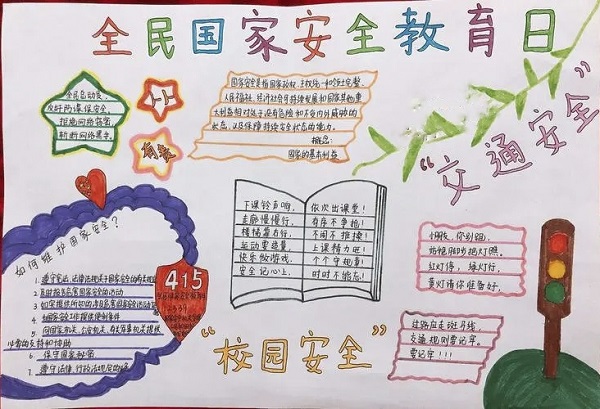 全民国家安全教育日
全民总动员,
反奸防谍保安全,
拒绝网络窃密,
斩断网络黑手。
人人
有责
国家安全是指国家政权、主权统一和领土完整、
人民福祉、经济社会可持续发展和国家其他重
大利益相对处于没有危险和不受内外威胁的
状态,以及保障持续安全状态的能力。
概念:
国家的基本利益
“交通安全”
如何维护国家安全?
1. 遵守宪法、法律法规关于国家安全的有关规定
2. 及时报告危害国家安全的活动
3. 如实提供所知的涉及危害国家安全活动证据
4.
5. 向国家机关、公安机关、有关军事机关提供
必要的支持和协助
6. 保守国家秘密
7. 遵守法律、行政法规规定的
415
下课铃声响,
走廊慢慢行,
楼梯靠右行,
运动要适量,
快乐做游戏,
安全记心上,
依次出课堂!
有序不争抢!
不闹不推搡!
上课精力旺!
个个守规章!
时时不能忘!
“校园安全”
小朋友,你别跑,
站稳脚步把灯照。
红灯停,绿灯行,
黄灯请你准备好。
过路应走斑马线,
交通规则要记牢。
要记牢!!!